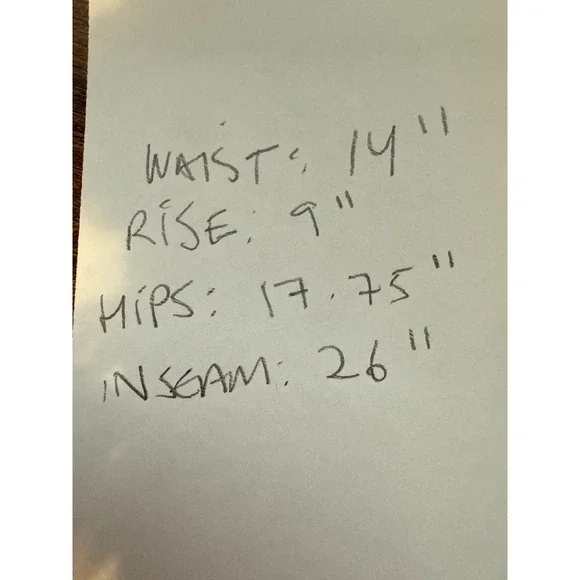 WAIST: 14"
RISE: 9"
HIPS: 17.75"
INSEAM: 26"